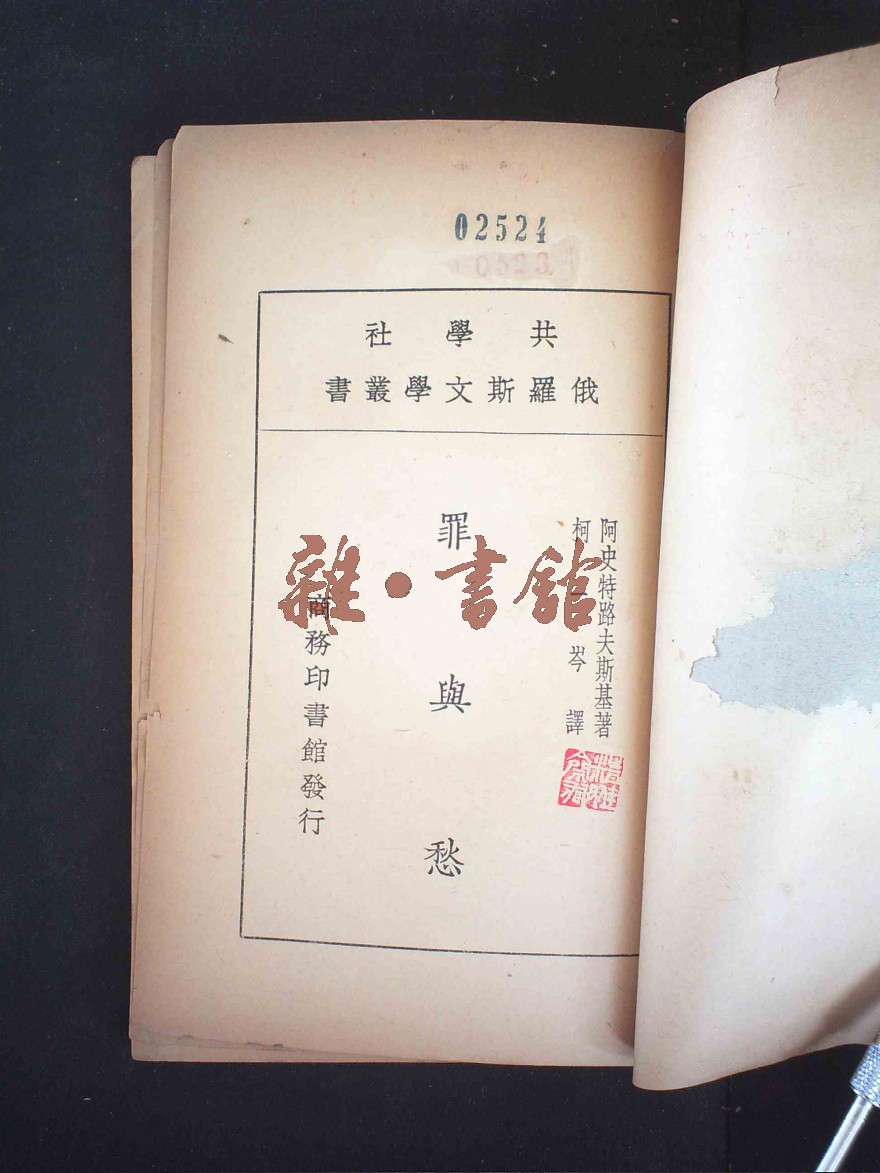 02524
共學社
俄羅斯文學叢書
阿史特路夫斯基著
柯一岑譯
罪與愁
商務印書館發行
雜·書館